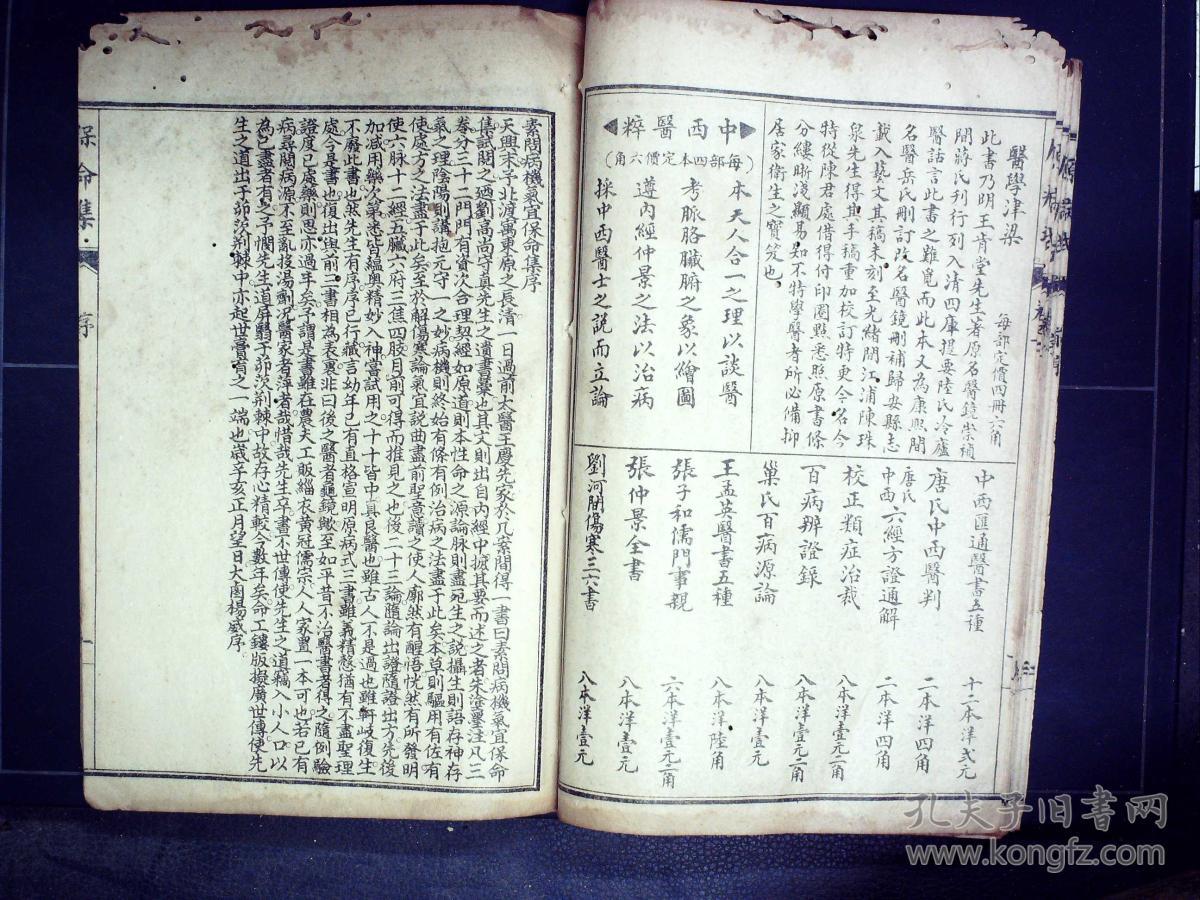 醫學津梁
每部定價四冊六角
此書乃明王肯堂先生著原名醫鏡崇禎
間蔣氏刊行列入清四庫提要陸氏冷廬
醫話言此書之難覓而此本又為康熙間
名醫岳氏刪訂改名醫鏡刪補歸安縣志
載入藝文其稿未刻至光緒間江浦陳珠
泉先生得其手稿重加校訂特更今名今
特從陳君處借得付印圈點悉照原書條
分縷晰淺顯易知不特學醫者所必備抑
居家衛生之寶笈也
中西醫粹
(每部四本定價六角)
本天人合一之理以談醫
考脈胳臟腑之象以繪圖
遵內經仲景之法以治病
採中西醫士之說而立論
中西匯通醫書五種 十二本洋弍元
唐氏中西醫判 二本洋四角
唐氏中西六經方證通解 二本洋四角
校正類症治裁 八本洋壹元二角
百病辨證錄 八本洋壹元二角
巢氏百病源論 八本洋壹元
王孟英醫書五種 八本洋陸角
張子和儒門事親 六本洋壹元二角
張仲景全書 八本洋壹元
劉河間傷寒三六書 八本洋壹元
素問病機氣宜保命集序
天興末予北渡寓東原之長清一日過前太醫王慶先家於几案間得一書曰素問病機氣宜保命
集試閱之廼劉高尚守真先生之遺書稾也其文則出自內經中摭其要而述之者朱塗墨注凡三
卷分三十二門門有資次合理契經如原道則本性命之源論脉則盡死生之說攝生則語存神存
氣之理陰陽則講抱元守一之妙病機則終始有條有例治病之法盡于此矣本草則驅用有佐有
使處方之法盡于此矣至於解傷寒論氣宜說曲盡前聖意讀之使人廓然有醒悟恍然有所發明
使六脉十二經五臟六府三焦四肢目前可得而推見之也後二十三論隨論出證隨證出方先後
加減用藥次第悉皆蘊奧精妙入神嘗試用之十十皆中真良醫也雖古人不是過也雖軒岐復生
不廢此書也然先生有序序已行藏言幼年已有直格宣明原病式三書雖義精慤猶有不盡聖理
處今是書也復出與前二書相為表裏非曰後之醫者龜鏡歟至如平昔不治醫書者得之隨例驗
證度已處藥則思亦過半矣予謂是書雖在農夫工販緇衣黃冠儒宗人人家置一本可也若已有
病尋閱病源不至亂投湯劑況醫家者萍者哉惜哉先生卒書不世傳使先生之道竊入小人口以
為已書者有之予憫先生道屏翳于卯茨荊棘中故存心精較今數年矣命工鏤版擬廣世傳使先
生之道出于卯茨荊棘中亦起世膏肓之一端也歲辛亥正月望日大鹵楊威序
保命集
序
一
孔夫子旧书网
www.kongfz.com